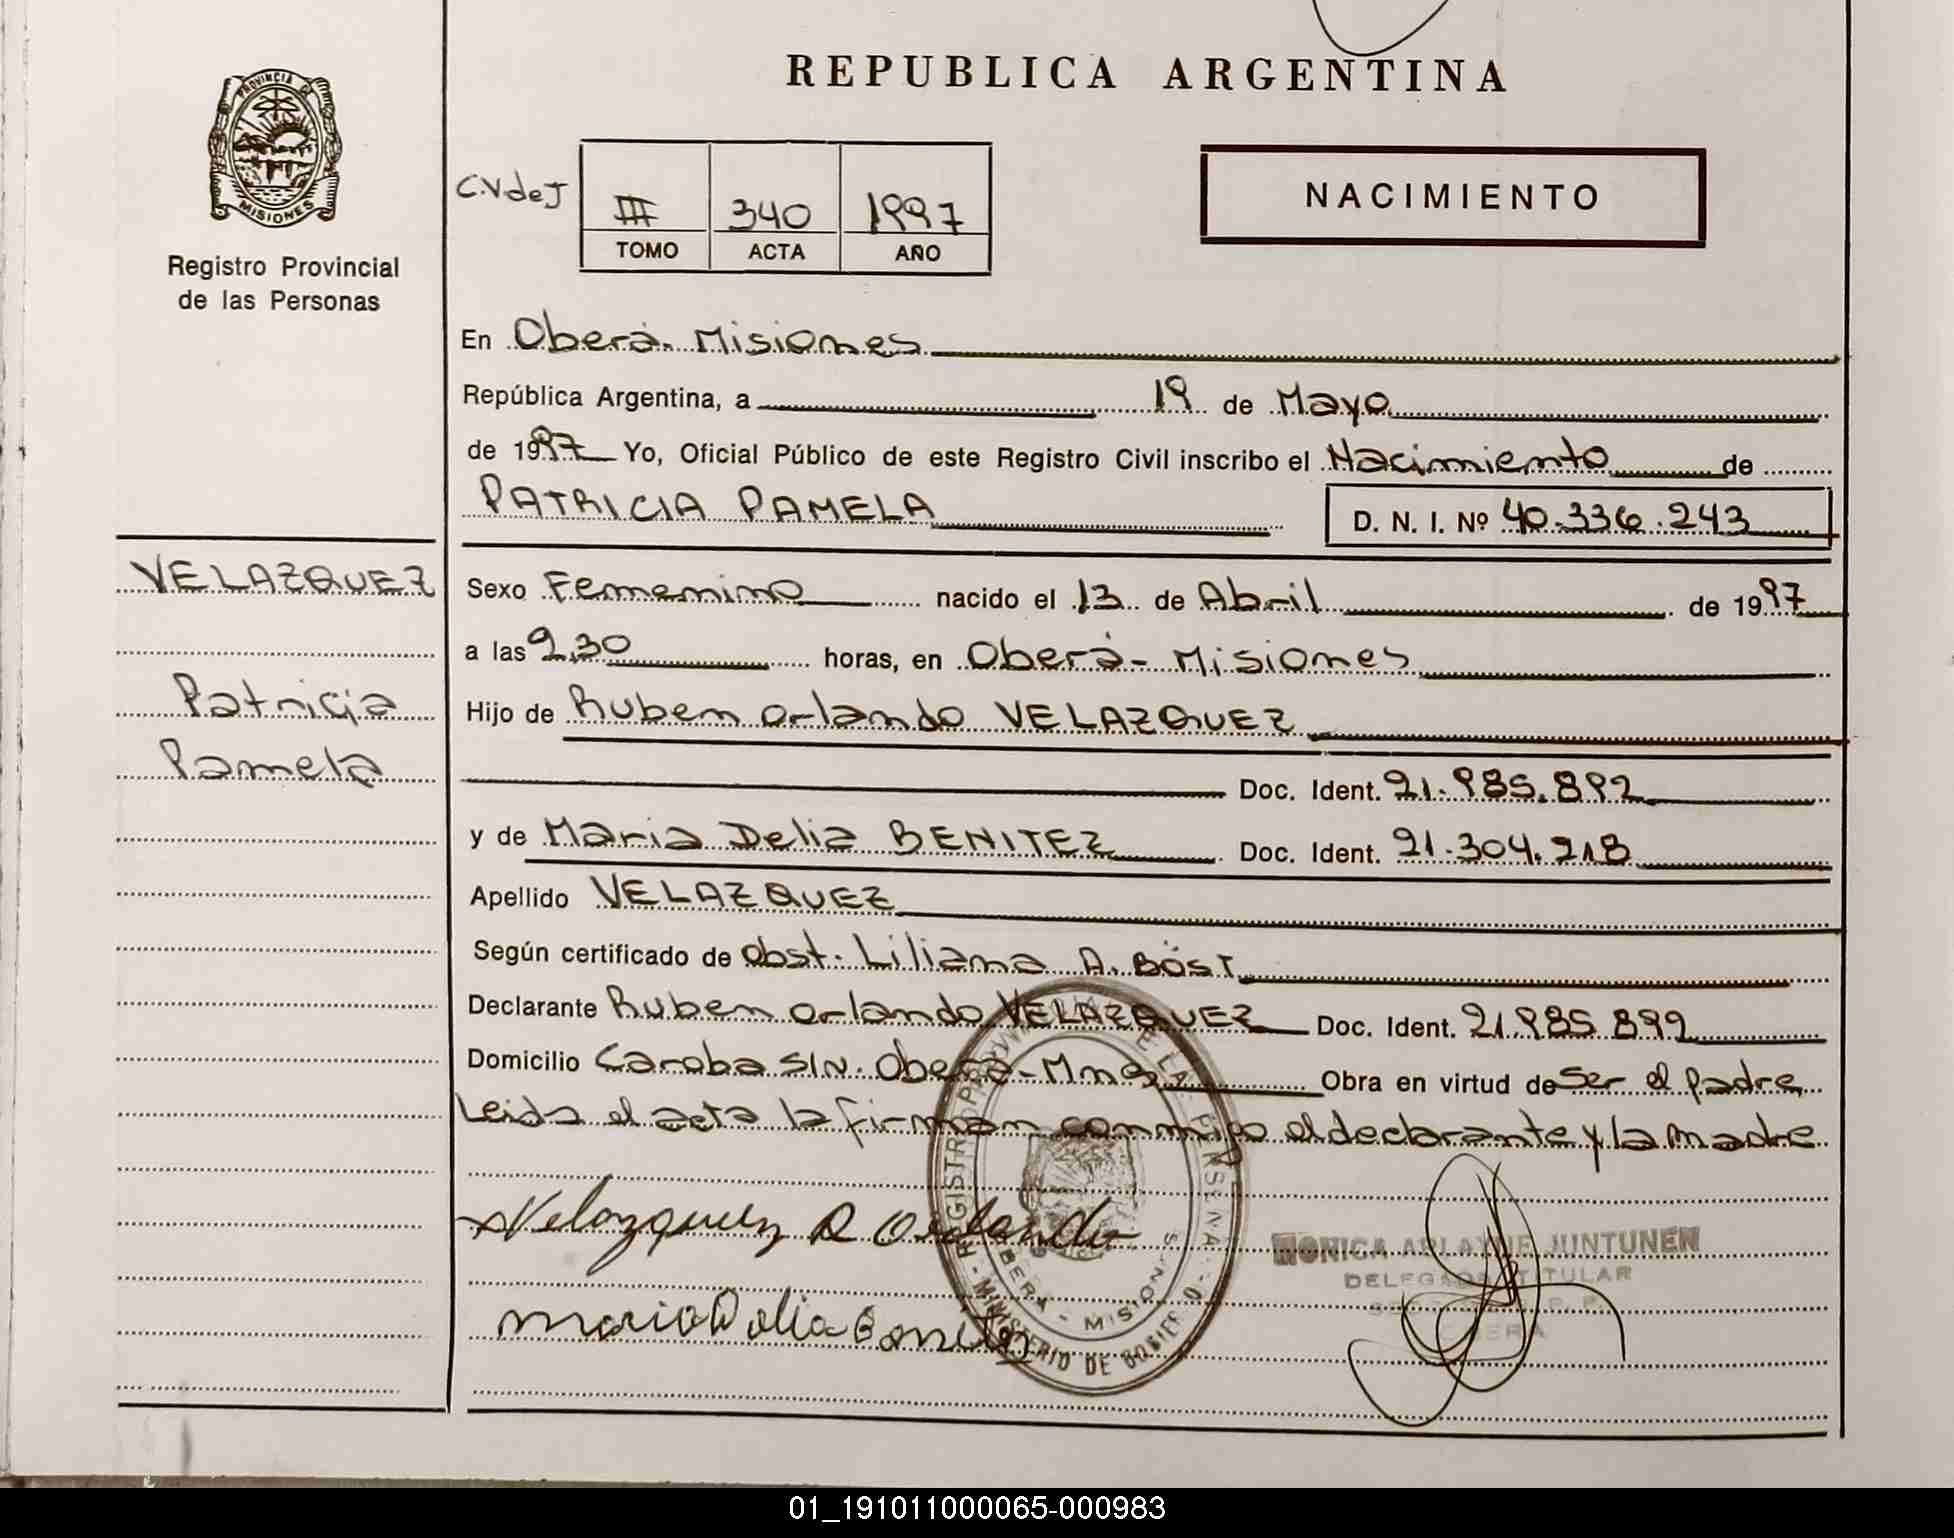 REPUBLICA ARGENTINA
PROVINCIA
MISIONES
Registro Provincial
de las Personas
C.V de J
III 340 1997
TOMO ACTA AÑO
NACIMIENTO
En Oberá. Misiones
República Argentina, a 19 de Mayo
de 1997 Yo, Oficial Público de este Registro Civil inscribo el Nacimiento de
PATRICIA PAMELA D. N. I. Nº 40.336.243
VELAZQUEZ
Patricia
Pamela
Sexo Femenino nacido el 13 de Abril de 1997
a las 9,30 horas, en Oberá - Misiones
Hijo de Ruben Orlando VELAZQUEZ
Doc. Ident. 21.985.892
y de Maria Delia BENITEZ Doc. Ident. 21.304.218
Apellido VELAZQUEZ
Según certificado de Obst. Liliana A. BÖST
Declarante Ruben Orlando VELAZQUEZ Doc. Ident. 21.985.892
Domicilio Caroba S/N. Oberá - Mnes Obra en virtud de ser el padre
Leida el acta la firman conmigo el declarante y la madre
Velazquez R Orlando
Maria Delia Benitez
OBERA - MISIONES
MINISTERIO DE GOBIERNO
MONICA ARLAYNE JUNTUNEN
DELEGADA TITULAR
OBERA
01_191011000065-000983